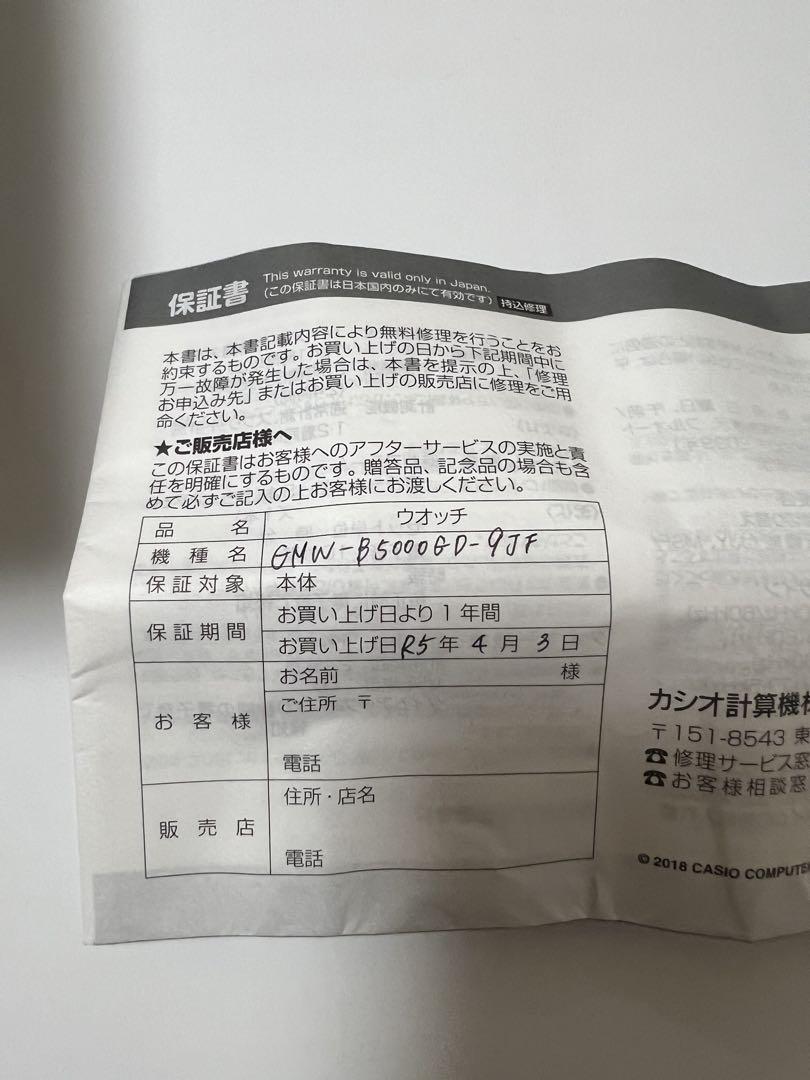 保証書
This warranty is valid only in Japan.
(この保証書は日本国内のみにて有効です) 持込修理
本書は、本書記載内容により無料修理を行うことをお
約束するものです。お買い上げの日から下記期間中に
万一故障が発生した場合は、本書を提示の上、「修理
お申込み先」またはお買い上げの販売店に修理をご用
命ください。
★ご販売店様へ
この保証書はお客様へのアフターサービスの実施と責
任を明確にするものです。贈答品、記念品の場合も含
めて必ずご記入の上お客様にお渡しください。
品名 ウオッチ
機種名 GMW-B5000GD-9JF
保証対象 本体
保証期間 お買い上げ日より1年間
お買い上げ日R5年4月3日
お客様 お名前 様
ご住所 〒
電話
販売店 住所・店名
電話
カシオ計算機
〒151-8543 東
☎修理サービス窓
☎お客様相談窓
© 2018 CASIO COMPUTE